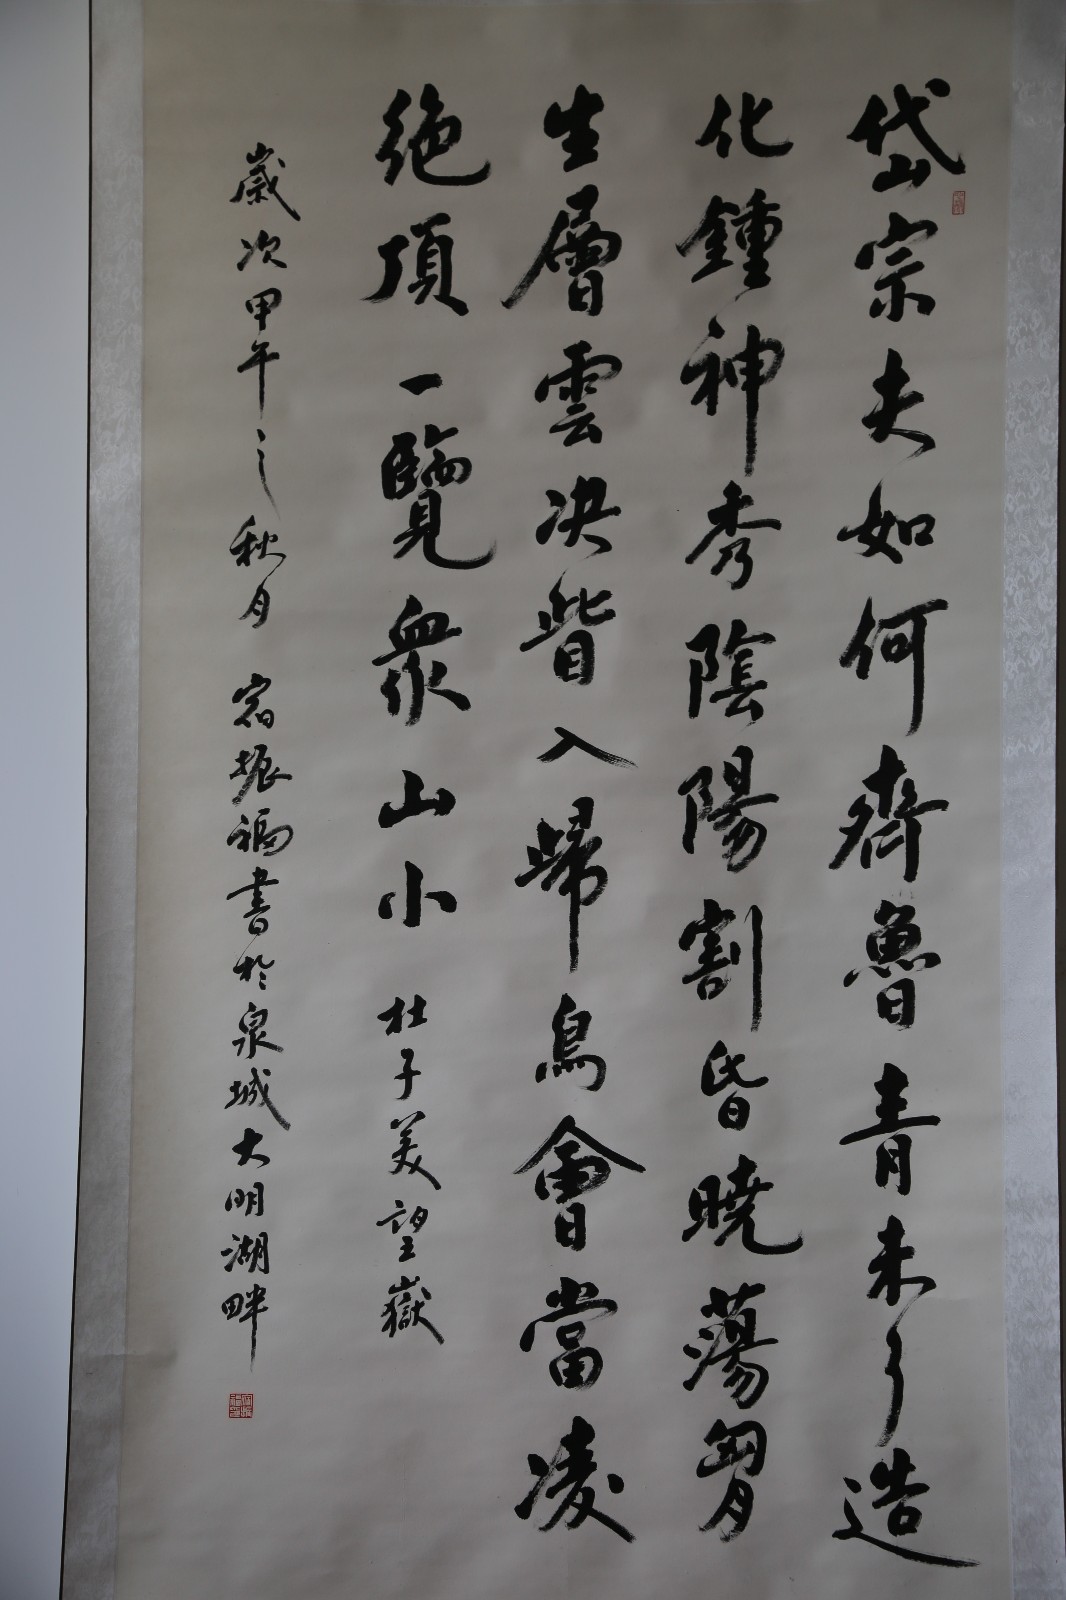 岱宗夫如何齊魯青未了造
化鍾神秀陰陽割昏曉蕩胷
生層雲决眥入歸鳥會當凌
絶頂一覽衆山小 杜子美望嶽
歲次甲午之秋月 宿振福書於泉城大明湖畔